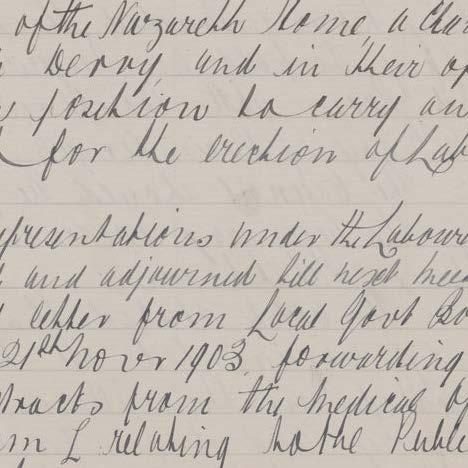 of the Nazareth Home, a Cha
Derry, and in their op
position to carry an
for the erection of Lab
presentations under the Labour
and adjourned till next mee
letter from Local Govt Bo
21st Novr 1903, forwarding
tracts from the Medical Of
m L relating to the Public